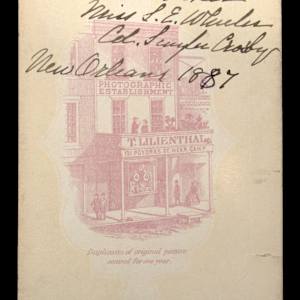 Miss S. E. Wheeler
Col.
New Orleans 1887
PHOTOGRAPHIC
ESTABLISHMENT
T. LILIENTHAL
121 POYDRAS ST. NEAR CAMP
Duplicates of original picture
saved for one year.